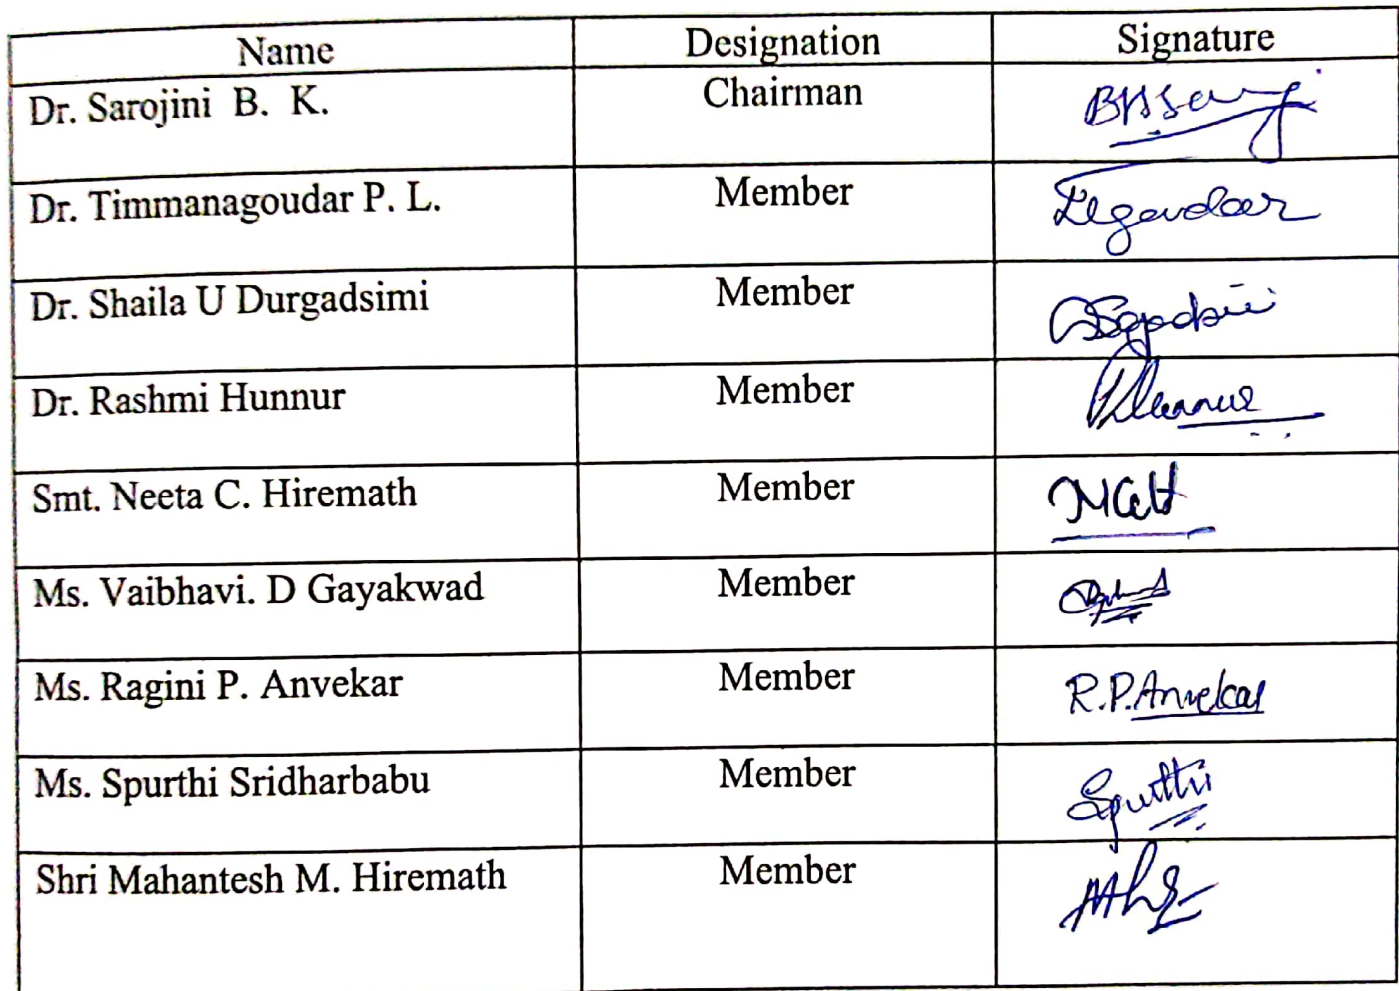 Name Designation Signature
Dr. Sarojini B. K. Chairman
Dr. Timmanagoudar P. L. Member
Dr. Shaila U Durgadsimi Member
Dr. Rashmi Hunnur Member
Smt. Neeta C. Hiremath Member
Ms. Vaibhavi. D Gayakwad Member
Ms. Ragini P. Anvekar Member R.P.Anvekar
Ms. Spurthi Sridharbabu Member Spurthi
Shri Mahantesh M. Hiremath Member